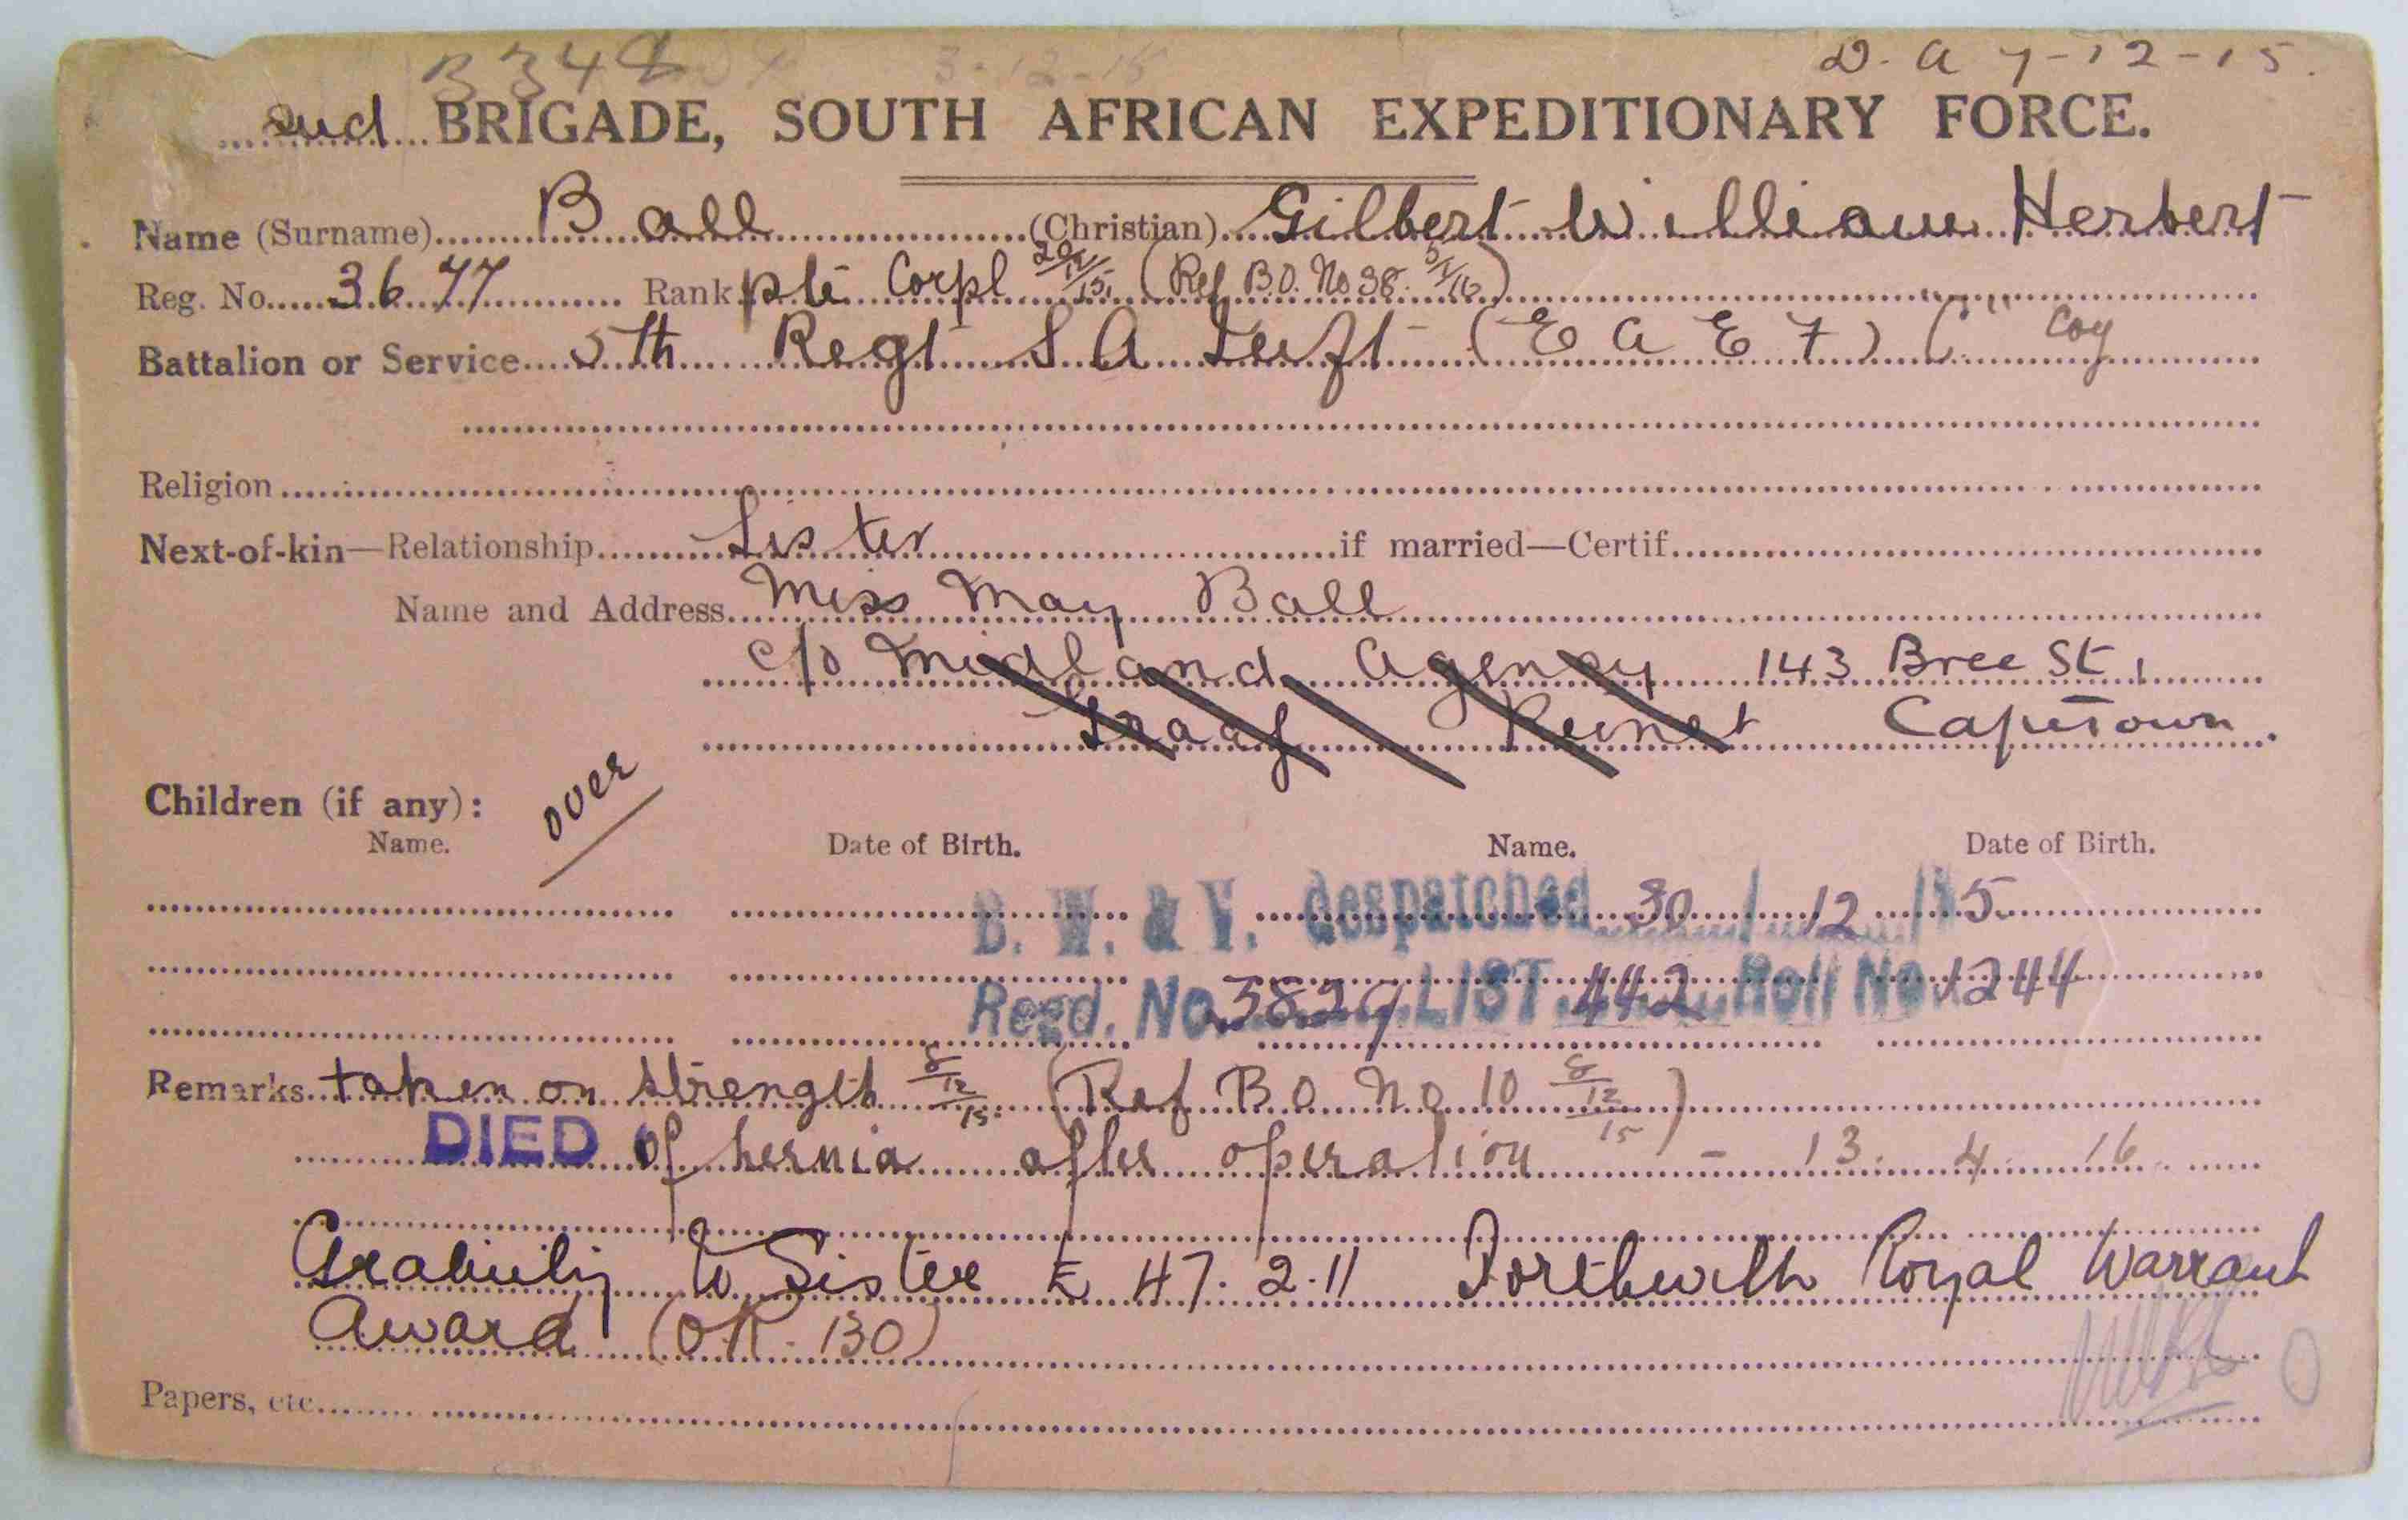 B 348 3-12-15 D. A 7-12-15.
2nd BRIGADE, SOUTH AFRICAN EXPEDITIONARY FORCE.
Name (Surname) Ball (Christian) Gilbert William Herbert
Reg. No. 3677 Rank pte Corpl 20/12/15 (Ref B.O. No 38. 5/1/16)
Battalion or Service 5th Regt S A Inft (E A E F) C" Coy
Religion
Next-of-kin—Relationship Sister if married—Certif.
Name and Address Miss May Ball
c/o Midland Agency 143 Bree St,
Graaf Reinet Capetown.
over
Children (if any):
Name. Date of Birth. Name. Date of Birth.
B. W. & V. despatched 30/12/15
Regd. No. 3829 LIST 442 Roll No 1244
Remarks taken on strength 8/12/15. (Ref B O No 10 8/12/15)
DIED of hernia after operation - 13. 4. 16.
Gratuity to Sister £ 47. 2. 11 Forthwith Royal Warrant
Award (OR. 130)
Papers, etc.